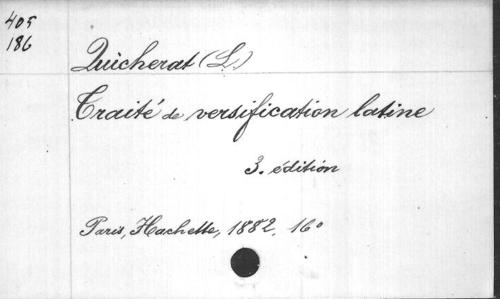 405
186
Quicherat (L.)
Traité de versification latine
3. édition
Paris, Hachette, 1882, 16°